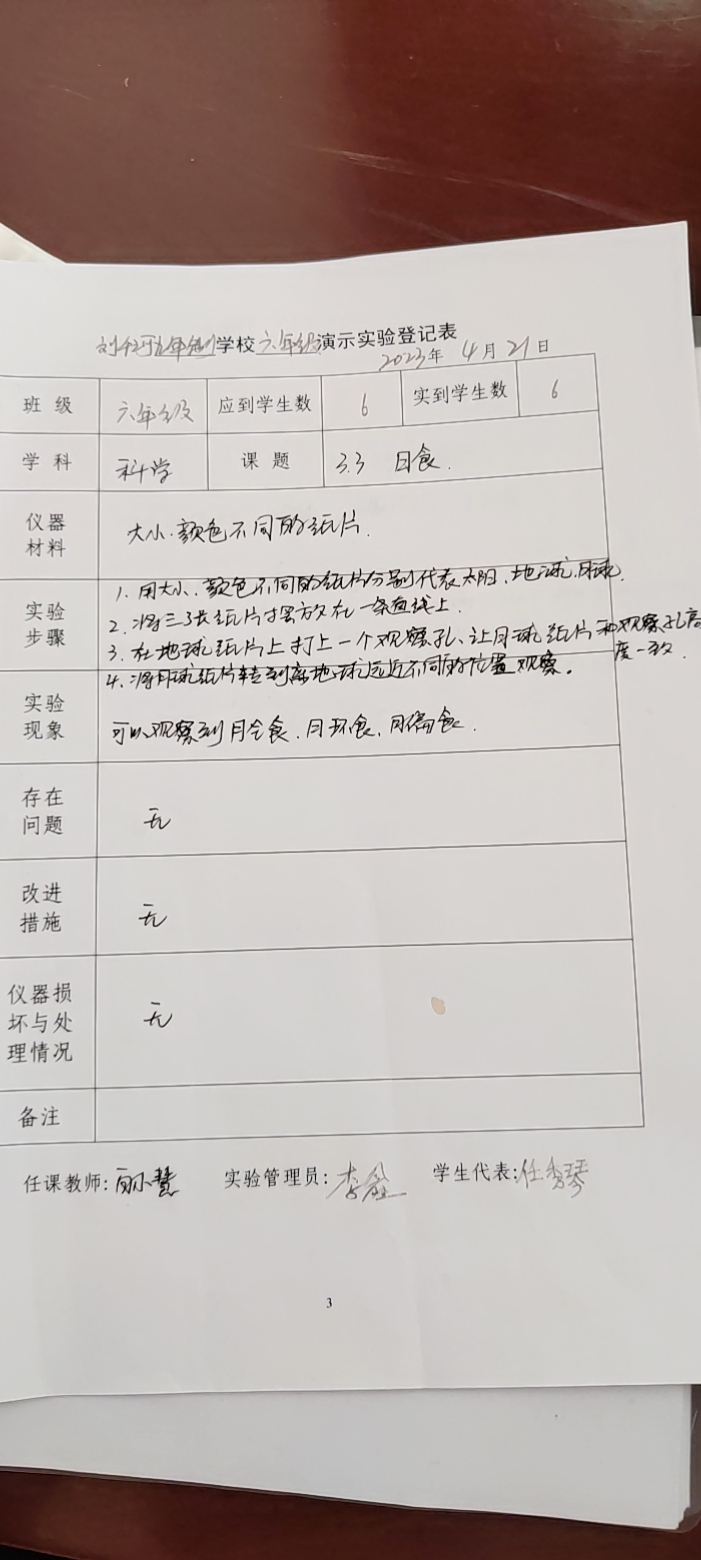 学校六年级演示实验登记表
2023年 4月 21日
班 级 六年级 应到学生数 6 实到学生数 6
学 科 科学 课 题 3.3 日食.
仪器
材料
大小.颜色不同的纸片.
实验
步骤
1. 用大小.颜色不同的纸片分别代表太阳、地球.月球.
2. 将三张纸片摆放在一条直线上.
3. 在地球纸片上打上一个观察孔、让月球纸片和观察孔高
度一致.
4. 将月球纸片转到离地球远近不同的位置观察。
实验
现象
可以观察到月全食.月环食,月偏食.
存在
问题
无
改进
措施
无
仪器损
坏与处
理情况
无
备注
任课教师: 实验管理员: 学生代表:
3